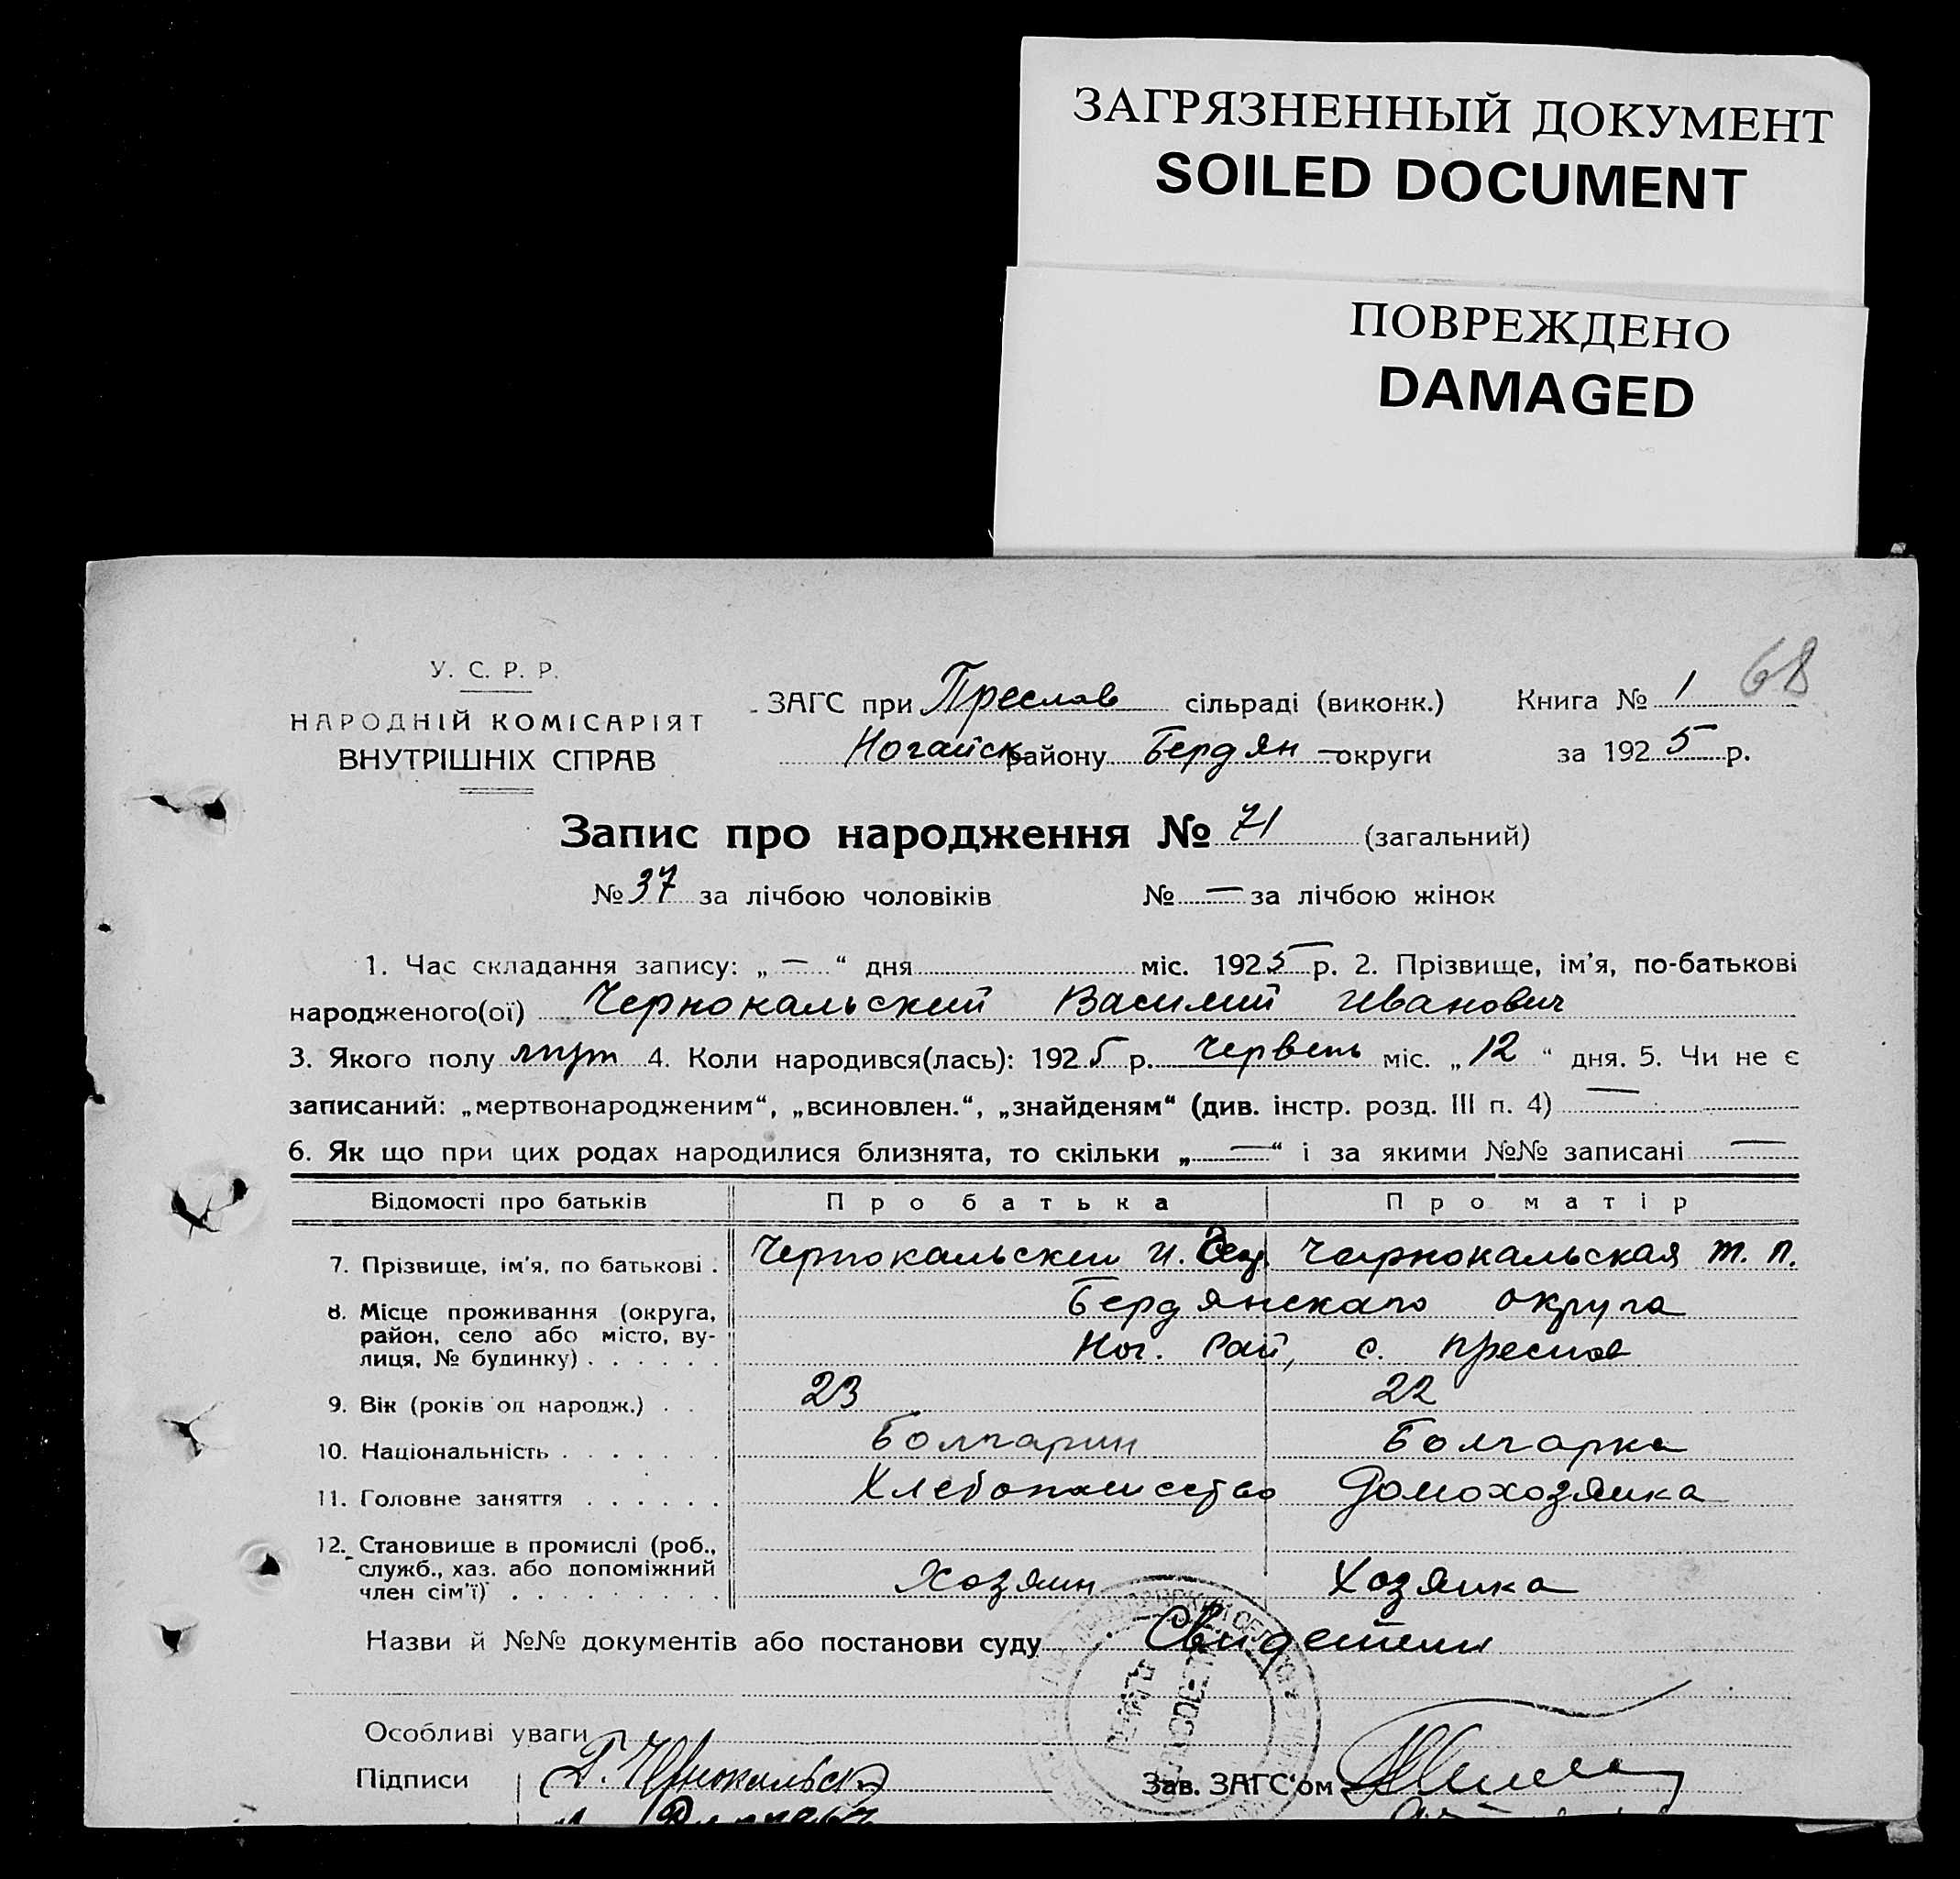 ЗАГРЯЗНЕННЫЙ ДОКУМЕНТ
SOILED DOCUMENT
ПОВРЕЖДЕНО
DAMAGED
68
У. С. Р. Р.
НАРОДНІЙ КОМІСАРІЯТ
ВНУТРІШНІХ СПРАВ
ЗАГС при Преслав сільраді (виконк.) Книга № 1
Ногайск району Бердян – округи за 1925 р.
Запис про народження № 71 (загальний)
№ 37 за лічбою чоловіків № — за лічбою жінок
1. Час складання запису: „ — “ дня міс. 1925 р. 2. Прізвище, ім'я, по-батькові
народженого(ої) Чернокальский Василий Иванович
3. Якого полу 4. Коли народився(лась): 1925 р. Червень міс. „ 12 “ дня. 5. Чи не є
записаний: „мертвонародженим“, „всиновлен.“, „знайденям“ (див. інстр. розд. III п. 4) —
6. Як що при цих родах народилися близнята, то скільки „ — “ і за якими №№ записані —
Відомості про батьків Про батька Про матір
7. Прізвище, ім'я, по батькові . Чернокальский И. Чернокальская Т. П.
8. Місце проживання (округа, Бердянскаго округа
район, село або місто, ву-
лиця, № будинку) . . . . . . Ног. Рай, с. Преслав
9. Вік (років од народж.) . . 23 22
10. Національність . . . . . . . Болгарин Болгарка
11. Головне заняття . . . . . . Хлебопашество Домохозяйка
12. Становище в промислі (роб.,
служб., хаз. або допоміжний
член сім'ї) . . . . . . . . . Хозяин Хозяйка
Назви й №№ документів або постанови суду Свидетели
Особливі уваги
Підписи Г. Чернокальск Зав. ЗАГС'ом